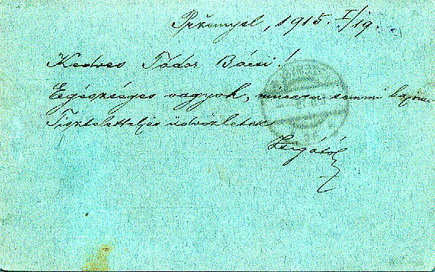 Przemysl, 1915. I/19.
Kedves Tódor Bácsi!
Egészséges vagyok, nincsen semmi bajom.
Tiszteletteljes üdvözletek
Zsigától